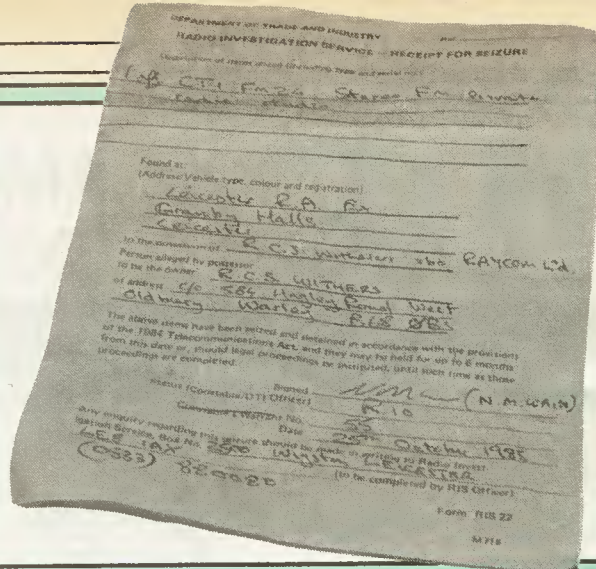 DEPARTMENT OF TRADE AND INDUSTRY
RADIO INVESTIGATION SERVICE — RECEIPT FOR SEIZURE
Description of items seized (including type and serial no.)
1 off CTI FM2G Stereo FM
studio
Found at:
(Address/Vehicle type, colour and registration)
Leicester R.A. Ex
Granby Halls
Leicester
In the possession of R.C.S. Withers RAYCOM Ltd.
Person alleged by possessor
to be the owner R.C.S WITHERS
of address c/o 584 Hagley Road West
Oldbury Warley B68 0BS
The above items have been seized and detained in accordance with the provisions
of the 1984 Telecommunications Act, and they may be held for up to 6 months
from this date or, should legal proceedings be instituted, until such time as those
proceedings are completed.
Signed (N.M.WAIN)
Status (Constable/DTI Officer) R10
Warrant No. 55
Date 25th October 1985
Any enquiry regarding this seizure should be made in writing to Radio Invest-
igation Service, Box No. 2500 Wigston LEICESTER
LE8 1AX (to be completed by RIS Officer)
(0533) 880080
Form RIS 22
M718